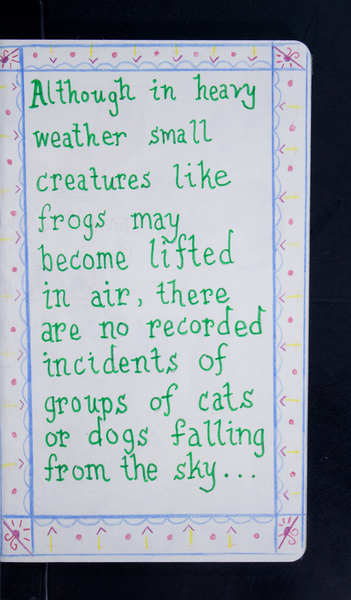 Although in heavy
weather small
creatures like
frogs may
become lifted
in air, there
are no recorded
incidents of
groups of cats
or dogs falling
from the sky...